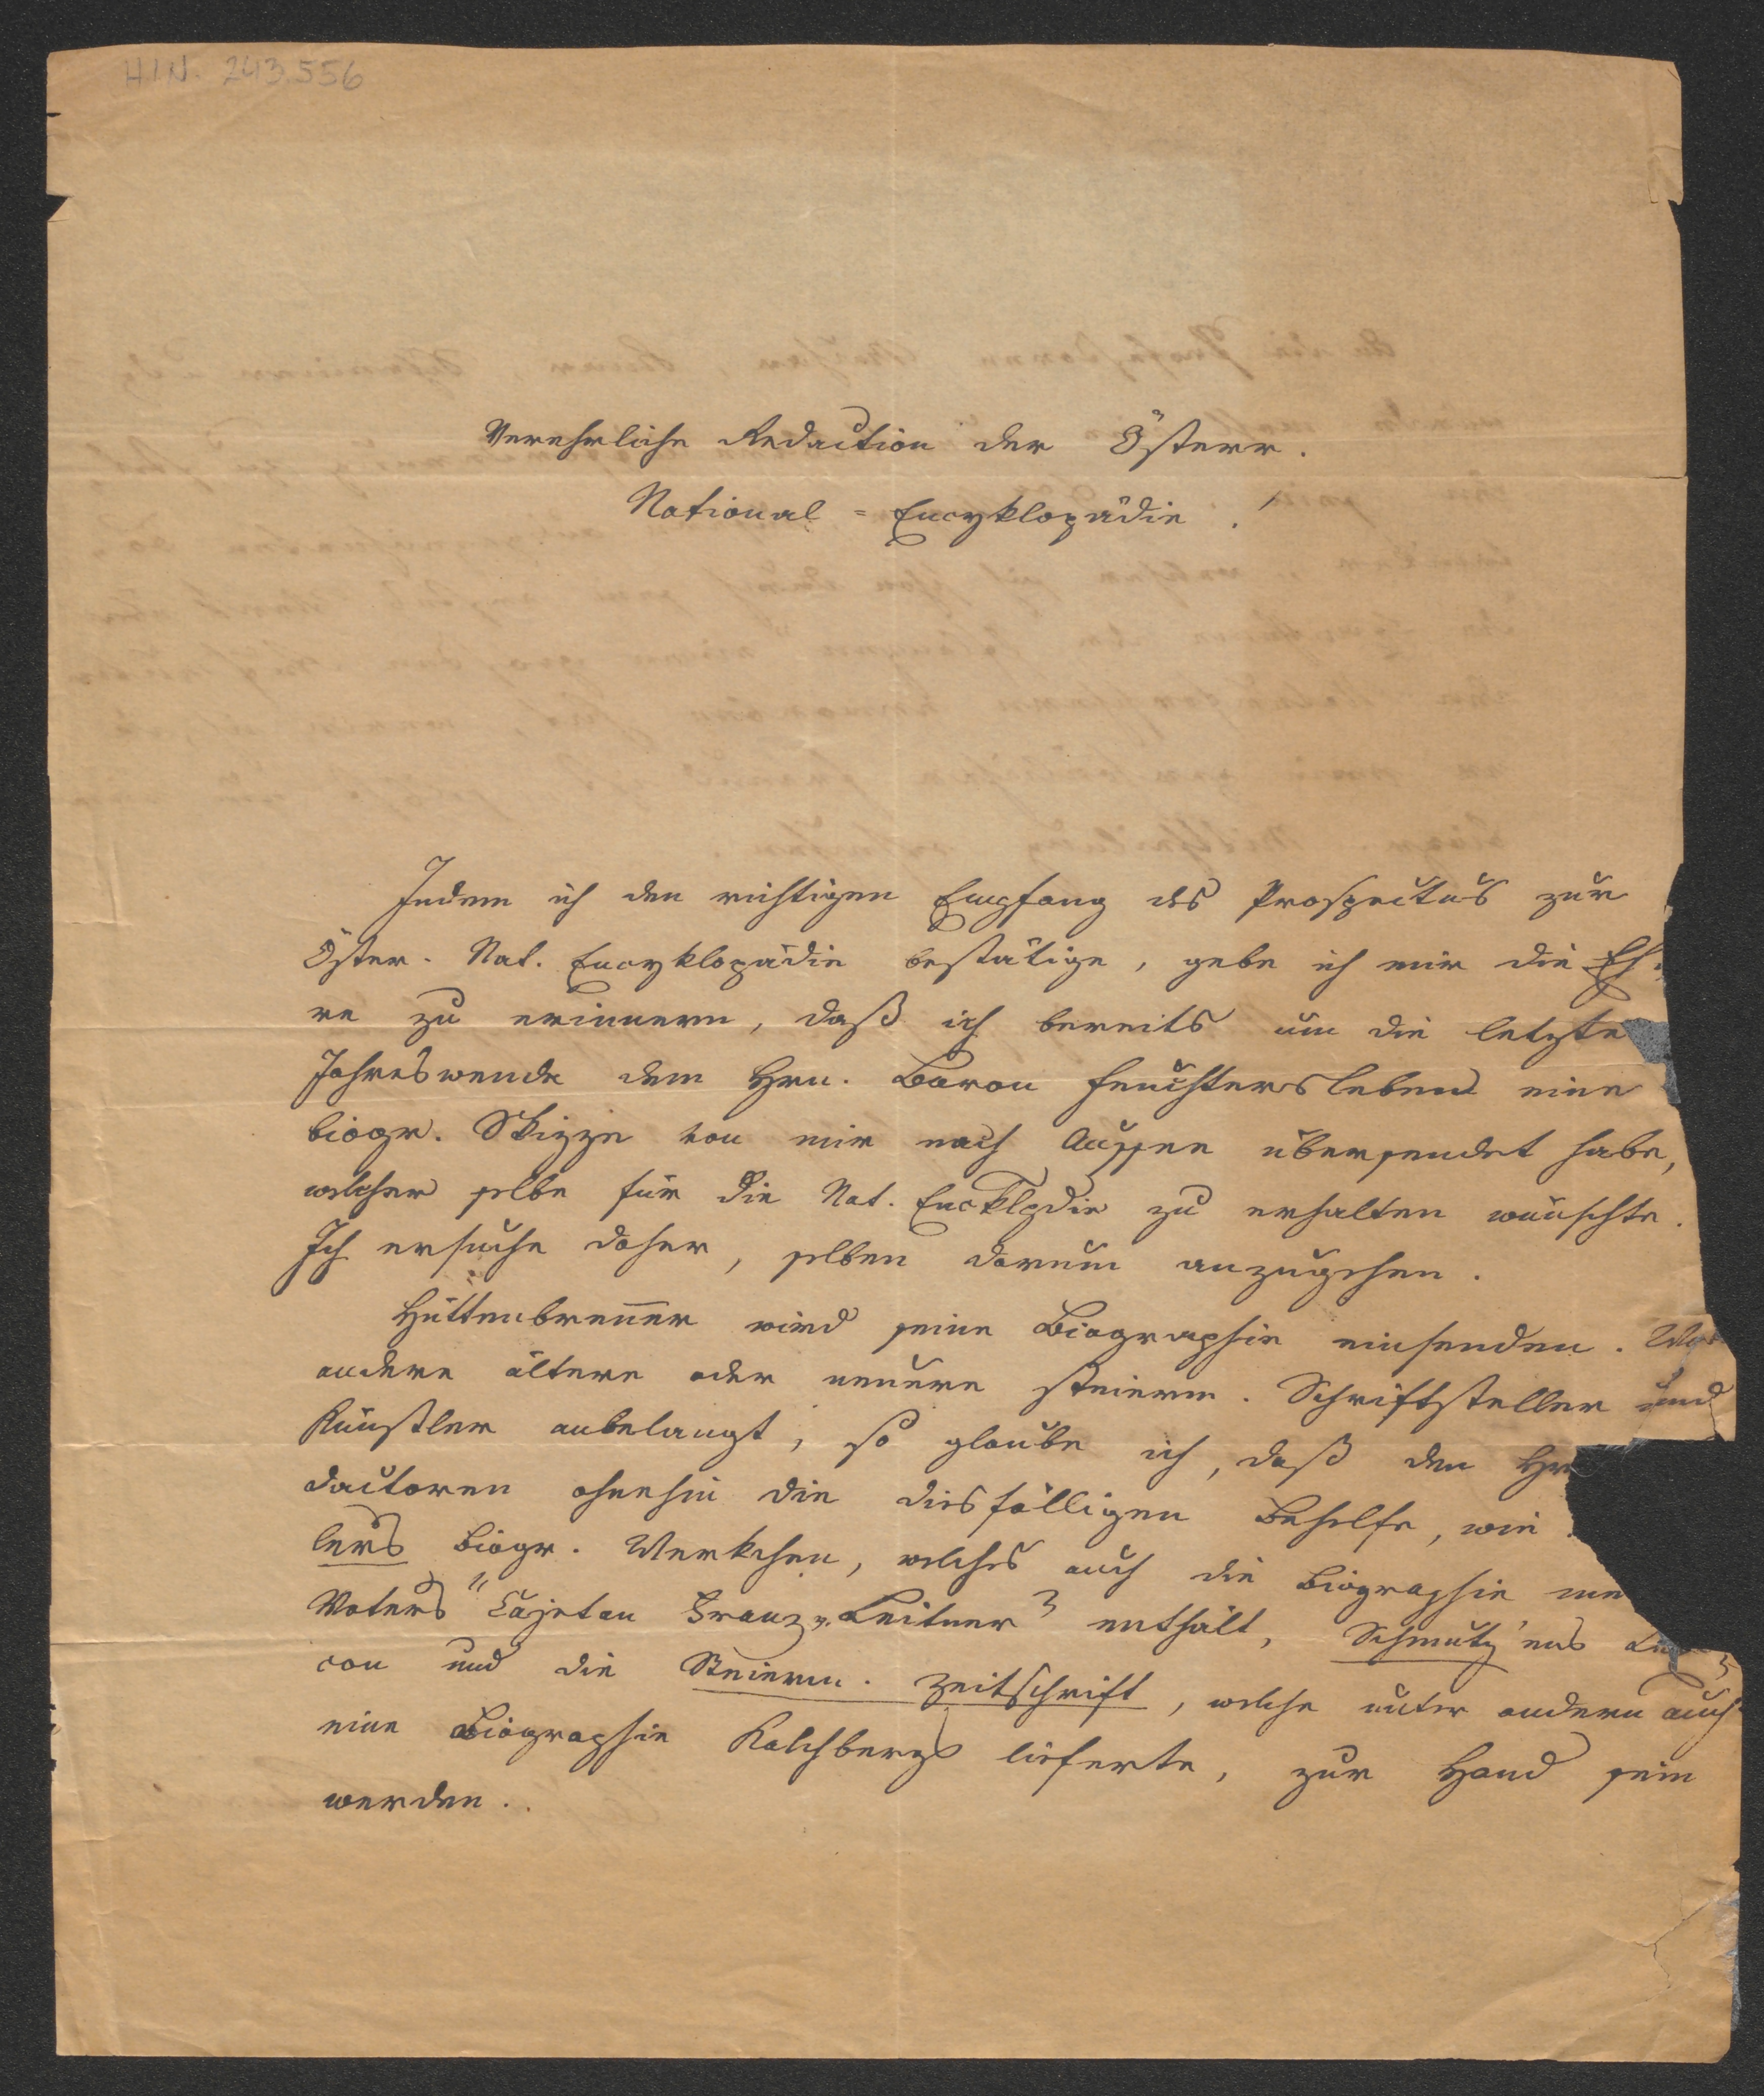 H.I.N. 243.556
Verehrliche Redaction der Österr.
National = Encyklopädie !
Indem ich den richtigen Empfang des Prospectus zur
Öster. Nat. Encyklopädie bestätige, gebe ich mir die Eh-
re zu erinnern, daß ich bereits um die letzte
Jahreswende dem Hrn. Baron Feuchtersleben eine
biogr. Skizze von mir nach Aussee übersendet habe,
welcher selbe für die Nat. Encklpdie zu erhalten wünschte.
Ich ersuche daher, selben darum anzugehen.
Hüttenbrenner wird seine Biographie einsenden. Was
andere ältere oder neuere steierm. Schriftsteller und
Künstler anbelangt, so glaube ich, daß den Hr
dactoren ohnehin die diesfälligen Behelfe, wie
lers biogr. Werkchen, welches auch die Biographie me
Vaters "Cajetan Franz v. Leitner" enthält, Schmutz'ens Lexi
con und die Steierm. Zeitschrift, welche unter andern auch
eine Biographie Kalchbergs lieferte, zur Hand sein
werden.